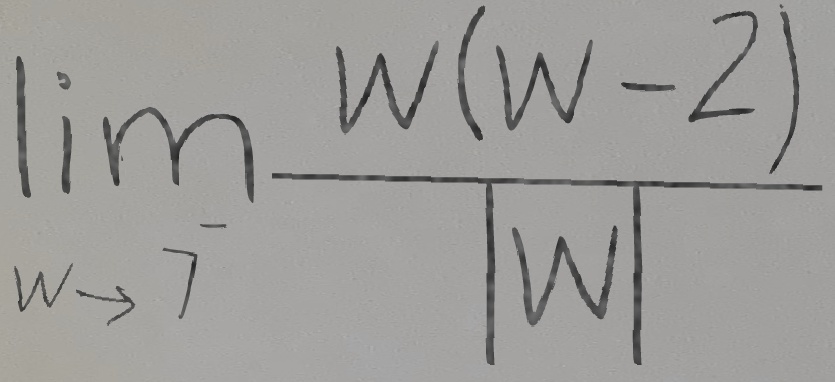 lim w→7⁻ w(w-2)/|w|